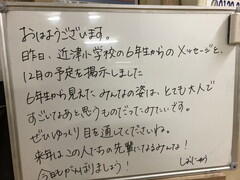 おはようございます。
昨日、近津小学校の6年生からのメッセージと、
12月の予定を掲示しました
6年生から見えたみんなの姿は、とても大人で
すごいなあと思うものだったみたいです。
ぜひゆっくり目を通してくださいね。
来年はこの人たちの先輩になるみんな!
今日もがんばりましょう!